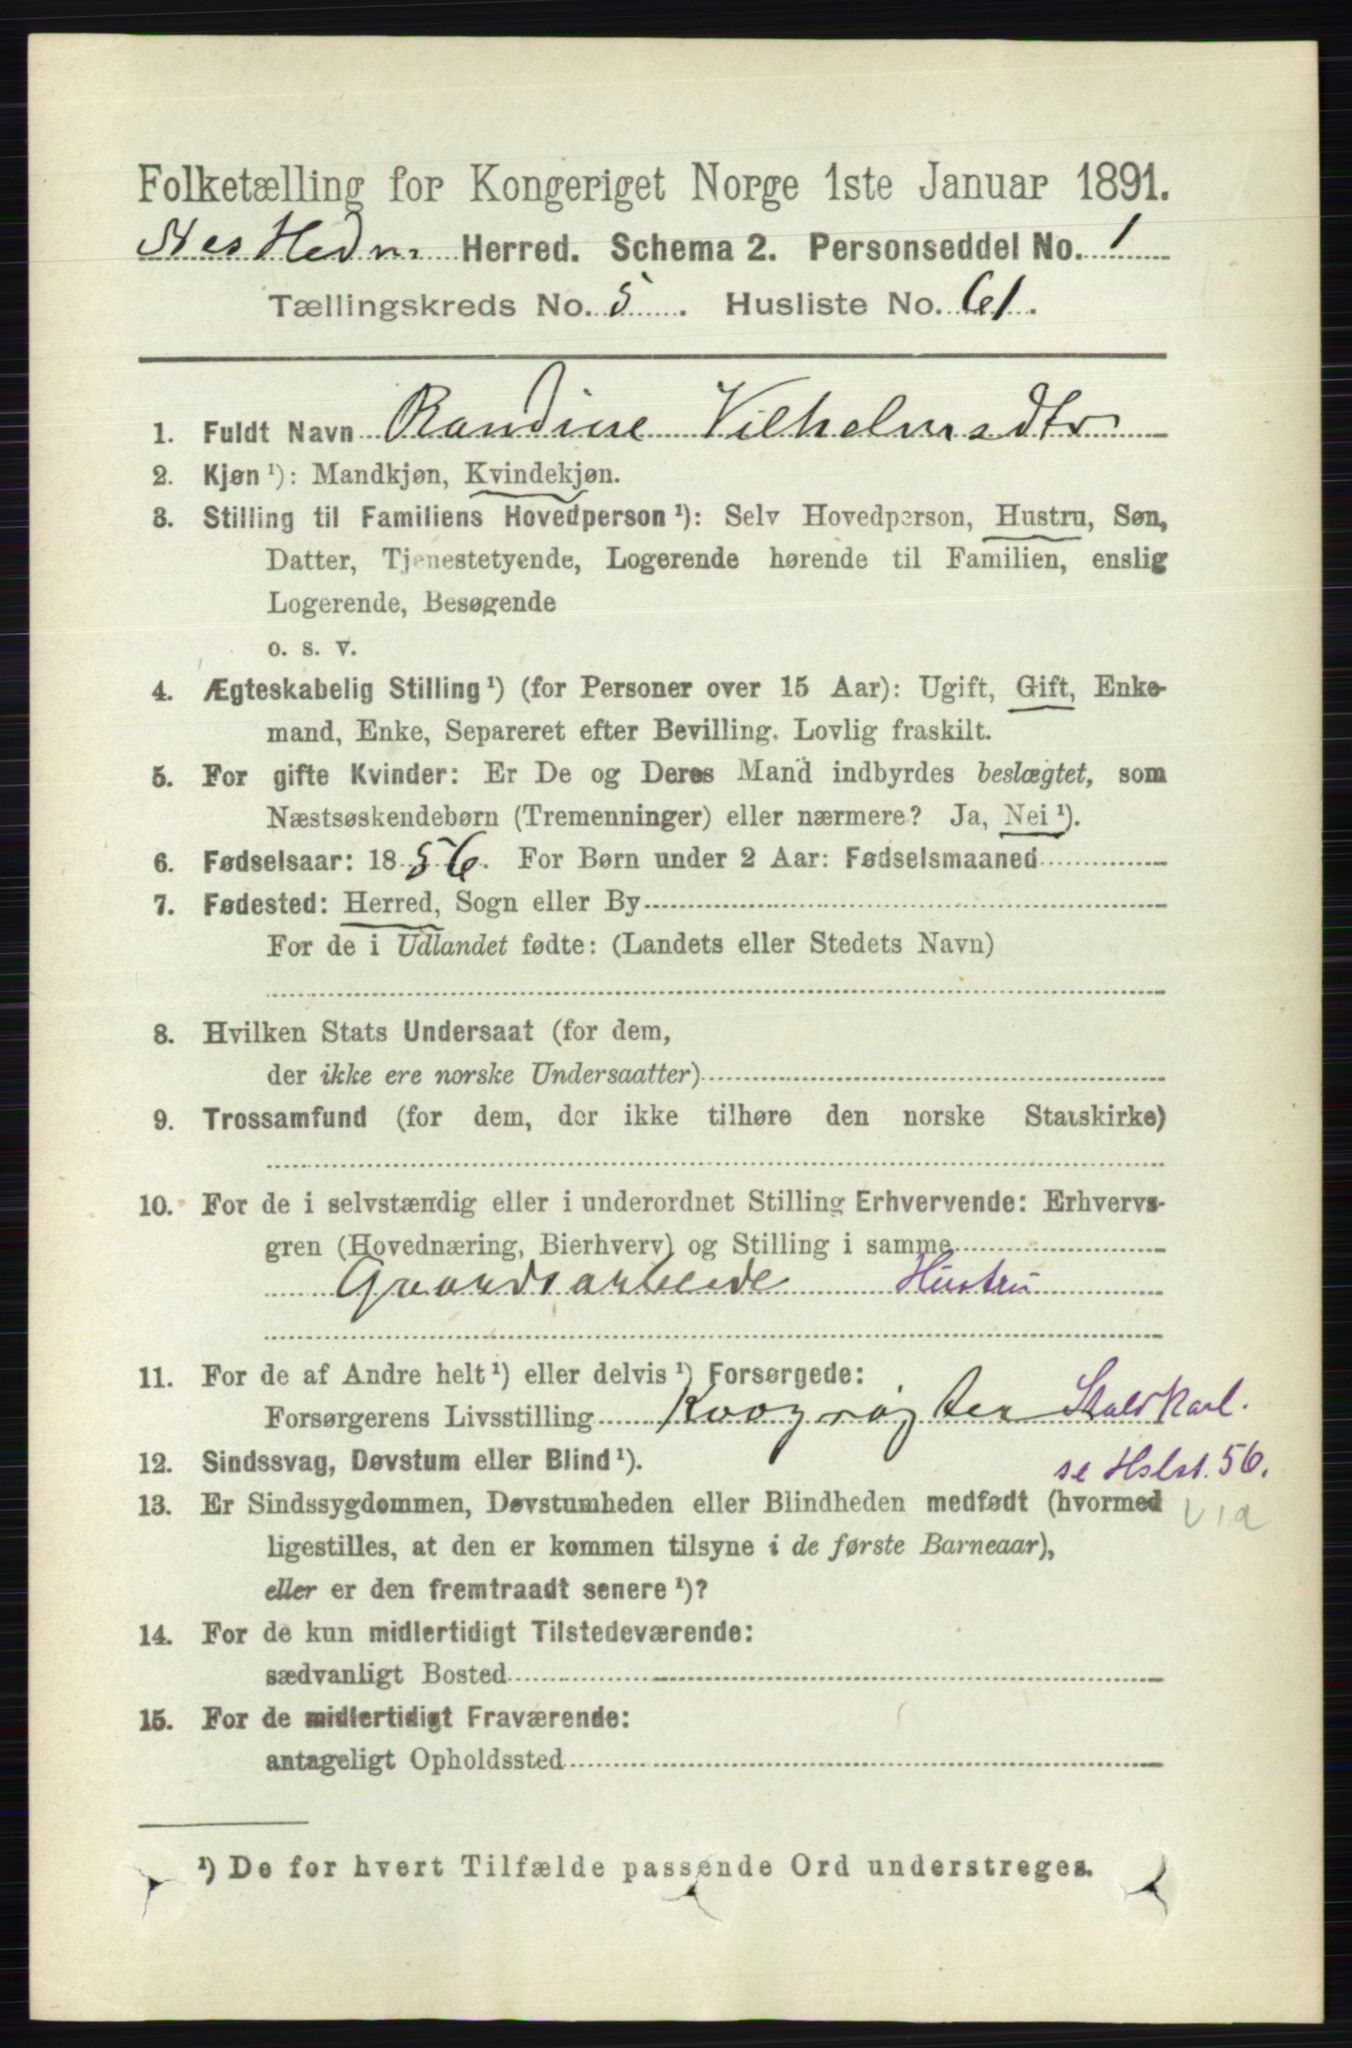 Folketælling for Kongeriget Norge 1ste Januar 1891.
Nes Hedm Herred. Schema 2. Personseddel No. 1
Tællingskreds No. 5. Husliste No. 61.
1. Fuldt Navn Randine Vilhelmsdtr
2. Kjøn ¹): Mandkjøn, Kvindekjøn.
3. Stilling til Familiens Hovedperson ¹): Selv Hovedperson, Hustru, Søn,
Datter, Tjenestetyende, Logerende hørende til Familien, enslig
Logerende, Besøgende
o. s. v.
4. Ægteskabelig Stilling ¹) (for Personer over 15 Aar): Ugift, Gift, Enke-
mand, Enke, Separeret efter Bevilling. Lovlig fraskilt.
5. For gifte Kvinder: Er De og Deres Mand indbyrdes beslægtet, som
Næstsøskendebørn (Tremenninger) eller nærmere? Ja, Nei ¹).
6. Fødselsaar: 1856. For Børn under 2 Aar: Fødselsmaaned
7. Fødested: Herred, Sogn eller By
For de i Udlandet fødte: (Landets eller Stedets Navn)
8. Hvilken Stats Undersaat (for dem,
der ikke ere norske Undersaatter)
9. Trossamfund (for dem, der ikke tilhøre den norske Statskirke)
10. For de i selvstændig eller i underordnet Stilling Erhvervende: Erhvervs-
gren (Hovednæring, Bierhverv) og Stilling i samme
Gaardsarbeide Hustru
11. For de af Andre helt ¹) eller delvis ¹) Forsørgede:
Forsørgerens Livsstilling Stald Karl.
12. Sindssvag, Døvstum eller Blind ¹).
se Hslst. 56.
13. Er Sindssygdommen, Døvstumheden eller Blindheden medfødt (hvormed
ligestilles, at den er kommen tilsyne i de første Barneaar),
eller er den fremtraadt senere ¹)?
14. For de kun midlertidigt Tilstedeværende:
sædvanligt Bosted
15. For de midlertidigt Fraværende:
antageligt Opholdssted
¹) De for hvert Tilfælde passende Ord understreges.